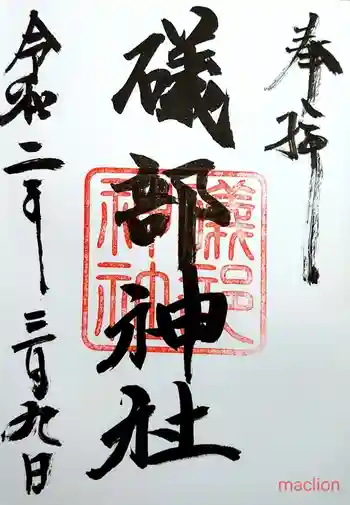 奉拝
礒部神社
礒部神社
令和二年三月九日
maclion